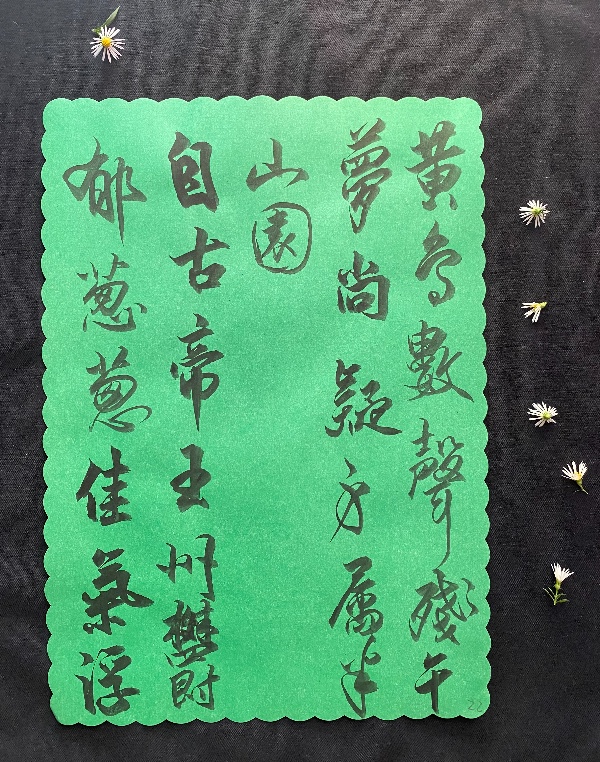 黃鳥數聲殘午
夢尚疑身屬半
山園
自古帝王州鬱
郁葱葱佳氣浮
22